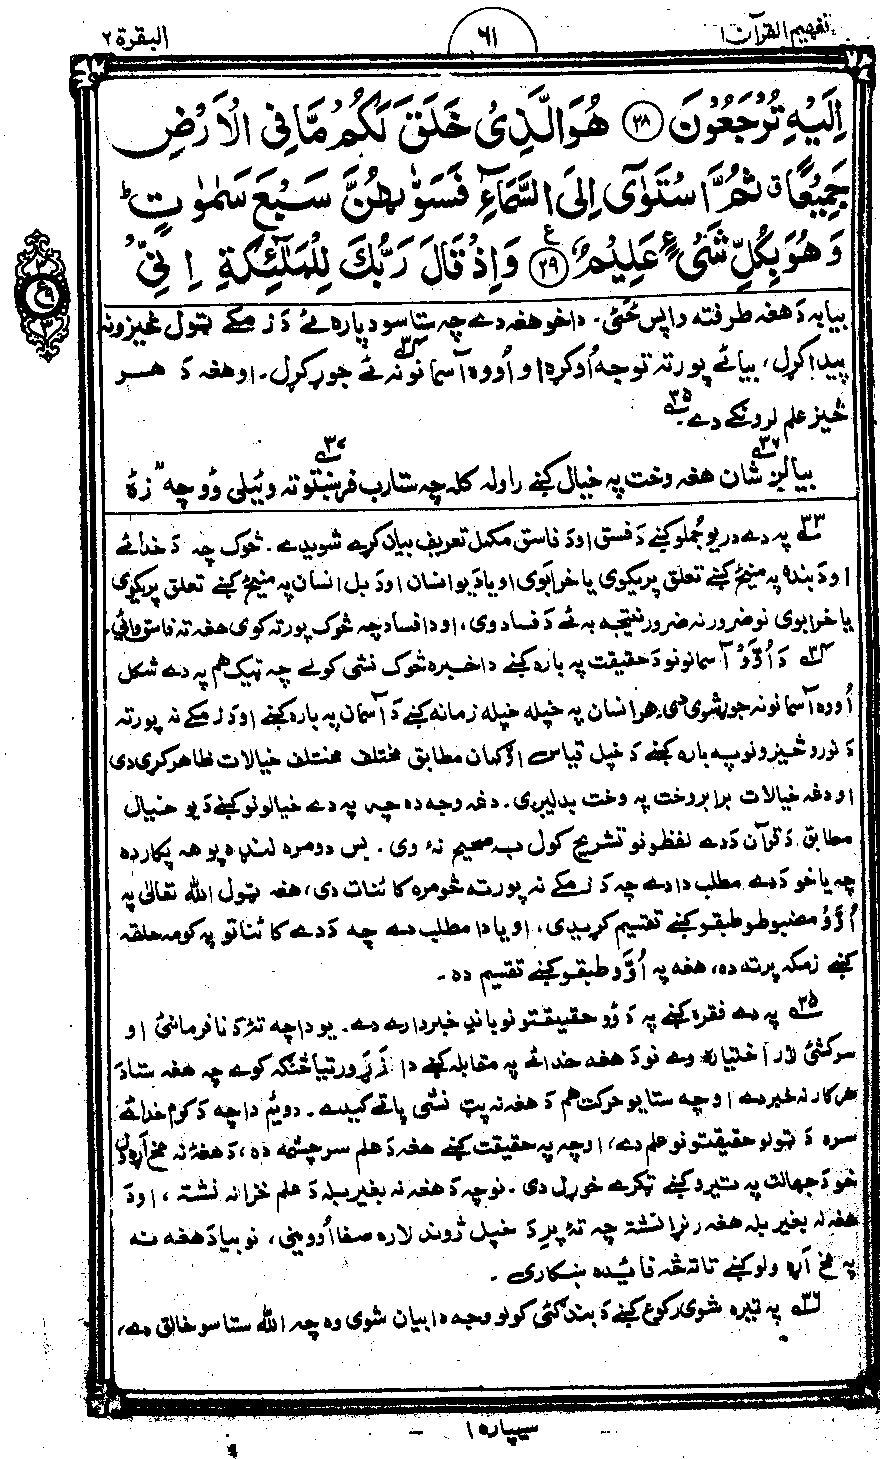 تفهيم القرآن ١
٦١
البقرة ٢
اِلَيْهِ تُرْجَعُوْنَ ﴿٢٨﴾ هُوَ الَّذِىْ خَلَقَ لَكُمْ مَّا فِى الْاَرْضِ
جَمِيْعًا ق ثُمَّ اسْتَوٰٓى اِلَى السَّمَآءِ فَسَوّٰىهُنَّ سَبْعَ سَمٰوٰتٍ ط
وَهُوَ بِكُلِّ شَىْءٍ عَلِيْمٌ ﴿٢٩﴾ ع وَاِذْ قَالَ رَبُّكَ لِلْمَلٰٓئِكَةِ اِنِّىْ
بيا به دَ هغه طرفته واپس ځئ. دا خو هغه دے چه ستاسو دپاره ئے دَ زمکے ټول څيزونه
پيدا کړل، بيا ئے پورته توجه اُوکړه او اُووه آسمانونه ٣٤ ئے جوړ کړل. او هغه دَ هر
څيز علم لرونکے دے. ٣٥
بيا لږ ٣٦ شان هغه وخت په خيال کښے راوله کله چه ستا رب فرښتو ٣٧ ته وئيلى وو چه "زۀ
٣٣ په دے دريو جُملو کښے دَ فسق او دَ فاسق مکمل تعريف بيان کړے شويدے. څوک چه دَ خدائے
او دَ بنده په مينځ کښے تعلق پريکوى يا خرابوى او يا دَ يو انسان او دَ بل انسان په مينځ کښے تعلق پريکوى
يا خرابوى نو ضرور نه ضرور نتيجه به ئے دَ فساد وى، او دا فساد چه څوک پورته کوى هغه ته فاسق وائى.
٣٤ دَ اُوُوْ آسمانونو دَ حقيقت په باره کښے دا خبره څوک نشى کولے چه ټهيک هم په دے شکل
اُووه آسمانونه جوړ شوى دى. هر انسان په خپله خپله زمانه کښے دَ آسمان په باره کښے او دَ زمکے نه پورته
دَ نورو څيزونو په باره کښے دَ خپل قياس او ګمان مطابق مختلف مختلف خيالات ظاهر کړى دى
او دغه خيالات برابر وخت په وخت بدليږى. دغه وجه ده چه په دے خيالونو کښے دَ يو خيال
مطابق دَ قرآن دَ دے لفظونو تشريح کول به صحيح نۀ وى. بس دومره لنډه پوهه پکار ده
چه يا خو دَ دے مطلب دا دے چه دَ زمکے نه پورته څومره کائنات دى، هغه ټول الله تعالىٰ په
اُوُوْ مضبوطو طبقو کښے تقسيم کړيدى، او يا دا مطلب دے چه دَ دے کائناتو په کومه حلقه
کښے زمکه پرته ده، هغه په اُوُو طبقو کښے تقسيم ده.
٣٥ په دے فقره کښے په دَ وُو حقيقتونو باندے خبردارے دے. يو دا چه تۀ دَ نافرمانئ او
سرکشئ لار اختياره وے نو دَ هغه خدائے په مقابله کښے دا زړور تيا څنګه کوے چه هغه ستا دَ
هر کار نه خبر دے او چه ستا يو حرکت هم دَ هغه نه پټ نشى پاتے کيدے. دوئم دا چه دَ کوم خدائے
سره دَ ټولو حقيقتونو علم دے، او چه په حقيقت کښے هغه دَ علم سرچشمه ده، دَ هغۀ نه مخ اَړول
خو دَ جهالت په تيرو کښے ټکرے خوړل دى. نو چه دَ هغه نه بغير بله دَ علم خزانه نشته، او دَ
هغه نه بغير بله هغه رنړا نشته چه تۀ پرِ دَ خپل ژوند لاره صفا اُووينى، نو بيا دَ هغه نه
په مخ اَړولو کښے تا ته څه فائيده ښکارى.
٣٦ په تيره شوى رکوع کښے دَ بندګئ کولو وجه دا بيان شوى وه چه الله ستاسو خالق دے،
سيپاره ١